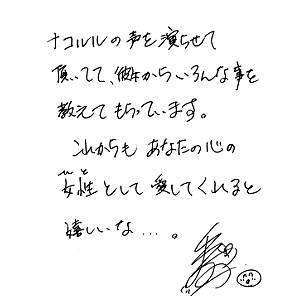 ナコルルの声を演らせて
頂いてて、彼女からいろんな事を
教えてもらっています。
これからもあなたの心の
女性として愛してくれると
嬉しいな…。